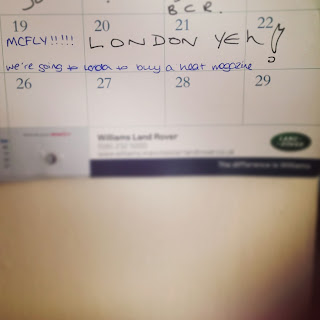 B C R.
19 20 21 22
MCFLY!!!!! LONDON YEH!
we're going to londa to buy a heat magazine
26 27 28 29
Williams Land Rover
LAND ROVER
The difference is Williams